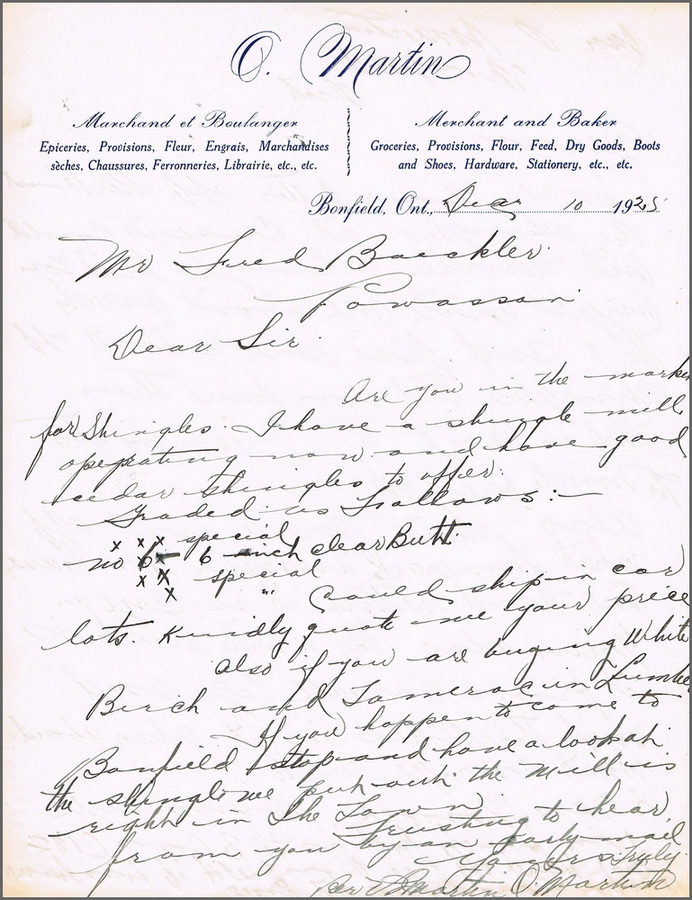 O. Martin
Marchand et Boulanger
Epiceries, Provisions, Fleur, Engrais, Marchandises
sèches, Chaussures, Ferronneries, Librairie, etc., etc.
Merchant and Baker
Groceries, Provisions, Flour, Feed, Dry Goods, Boots
and Shoes, Hardware, Stationery, etc., etc.
Bonfield, Ont., Dec 10 1925
Mr Fred Baeckler
Powassan
Dear Sir
Are you in the marke
for Shingles. I have a shingle mill
operating now and have good
cedar shingles to offer.
Graded as Follows:—
x x x special
no 6 — 6 inch clear Butt
x x special
x " Could ship in car
lots. Kindly quote me your price
also if you are buying White
Birch and Tamerac in Lumbe
If you happen to come to
Bonfield stop and have a look at
the shingle we put out. the Mill is
right in The Town.
Trusting to hear
from you by an early mail
Yours Truly.
Per O. Martin